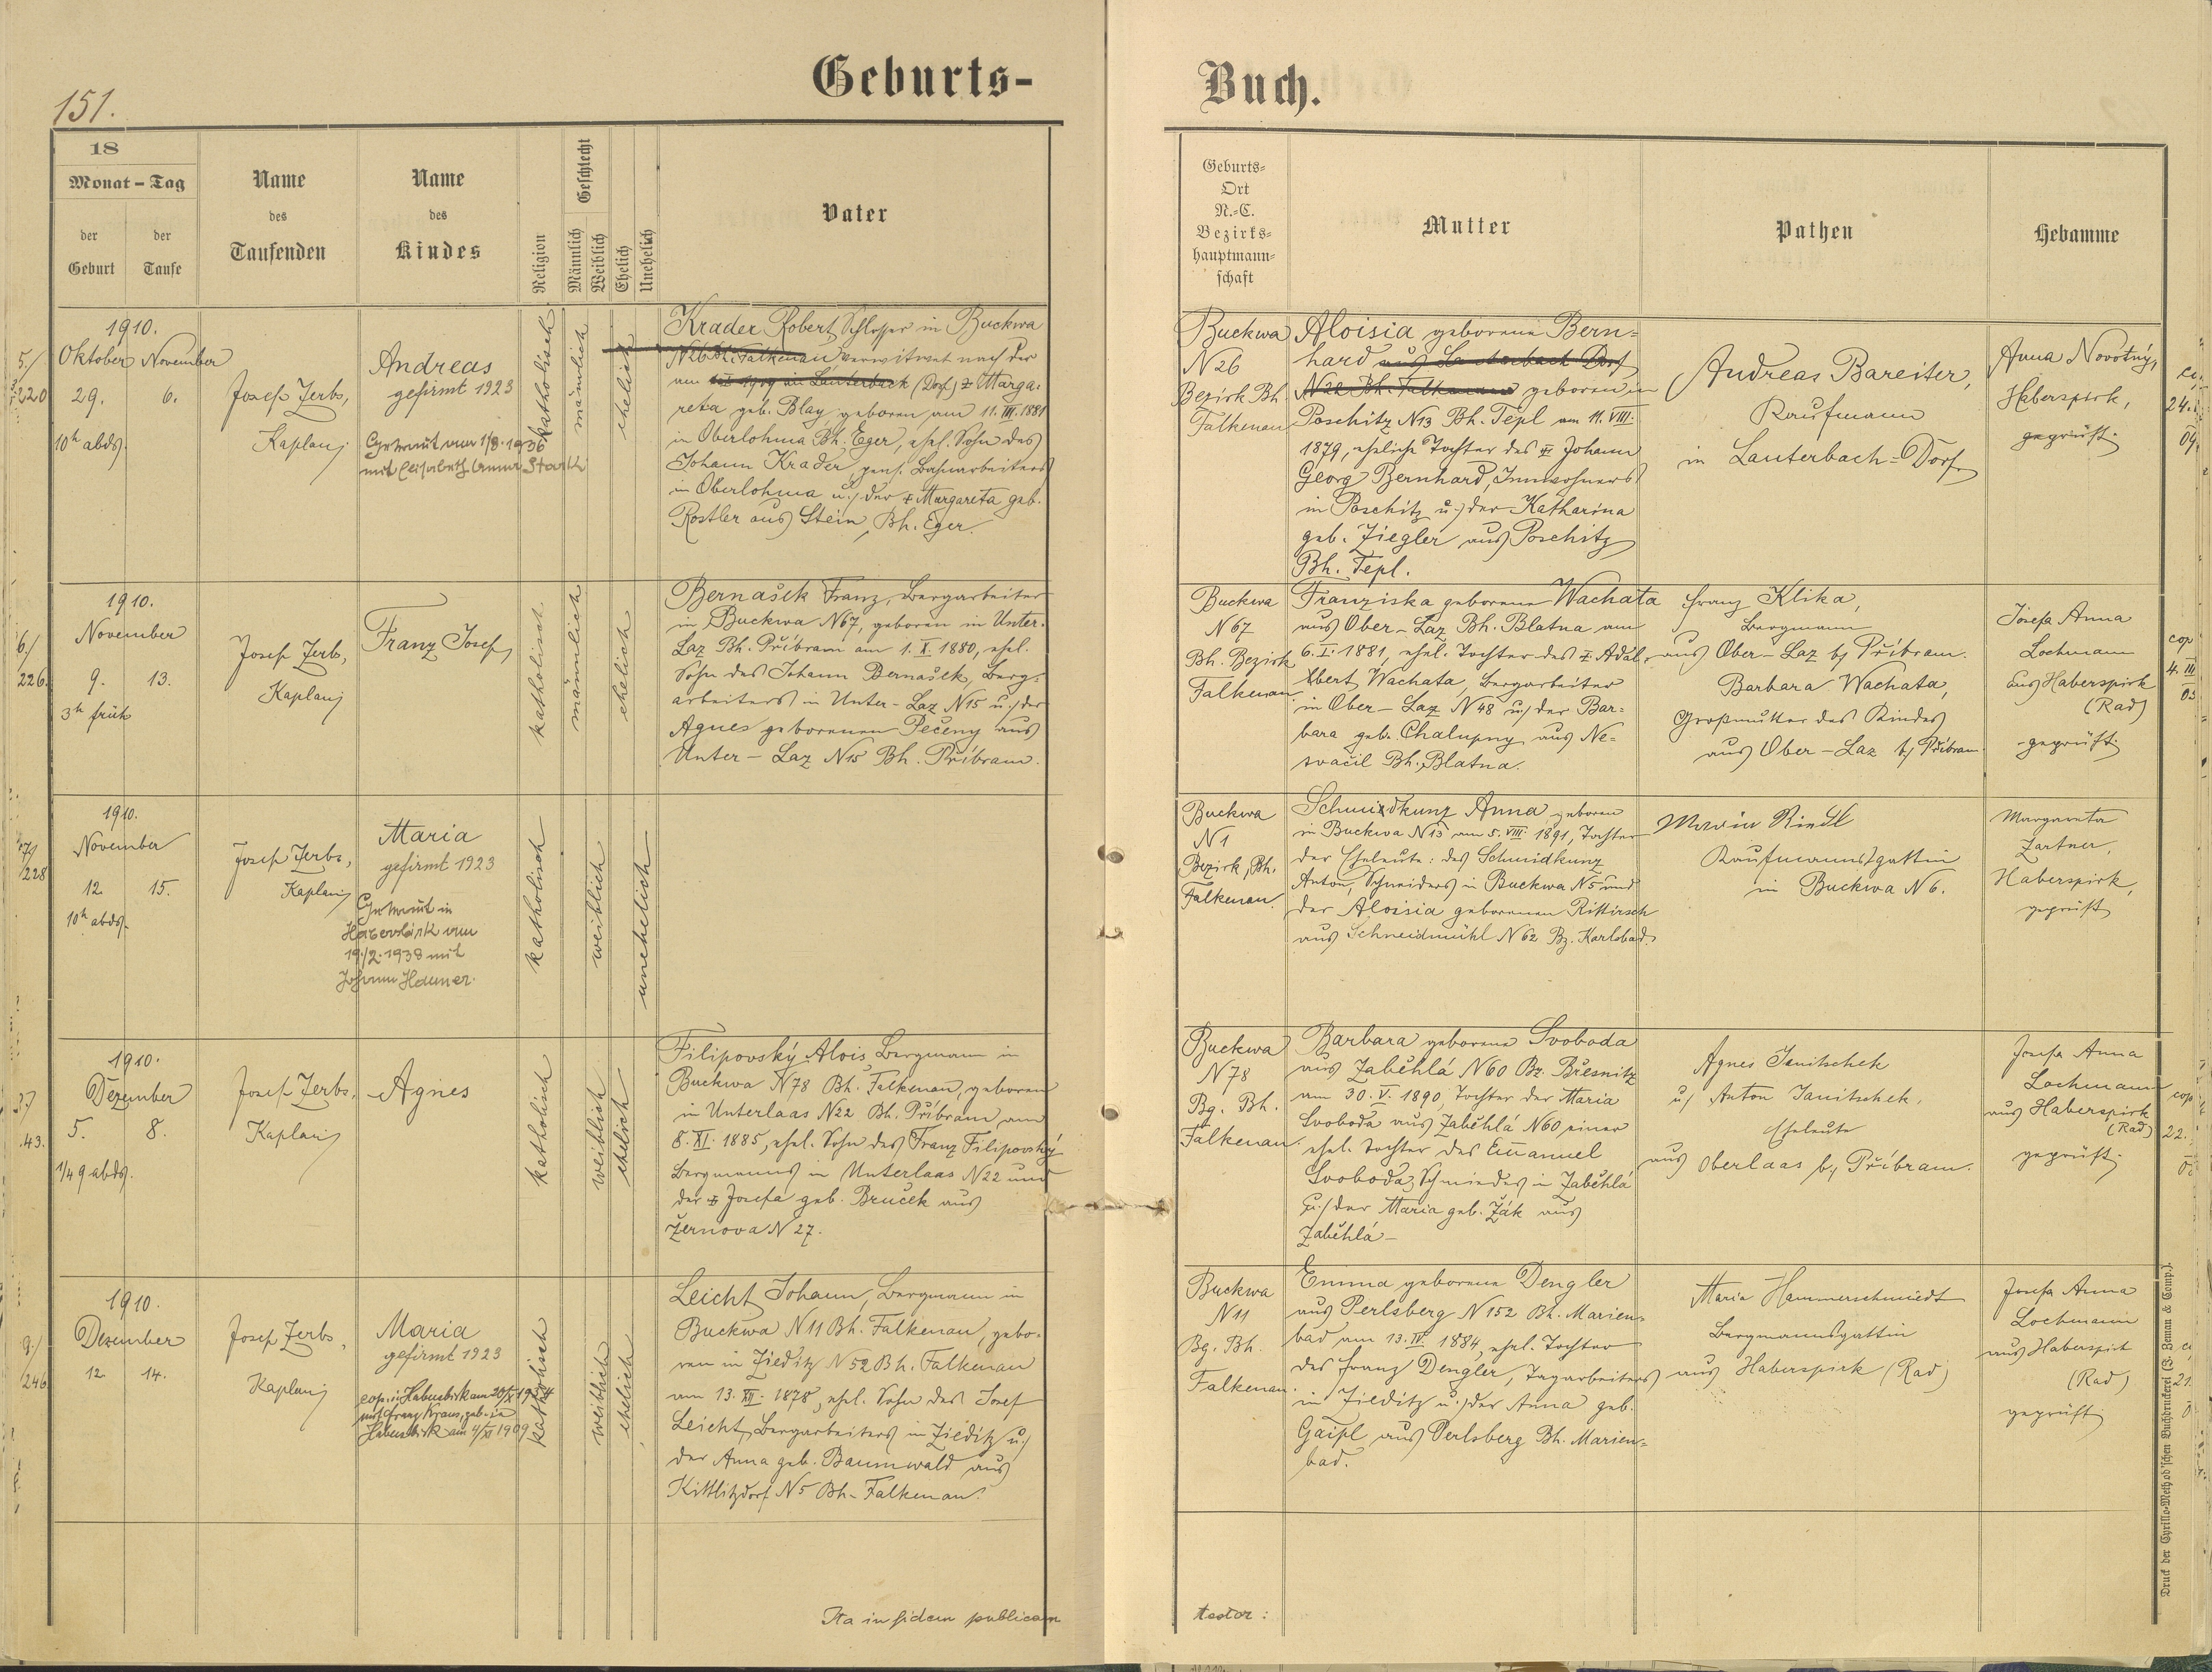 151.
Geburts-
Buch.
18
Monat - Tag
der Geburt
der Taufe
Name des Taufenden
Name des Kindes
Religion
Geschlecht
Männlich
Weiblich
Ehelich
Unehelich
Vater
Geburts-
Ort
N.-C.
Bezirks-
hauptmann-
schaft
Mutter
Pathen
Hebamme
5./
220
1910.
Oktober November
29. 6.
10h abds.
Josef Zerbs,
Kaplan
Andreas
gefirmt 1923
Getraut am 1/8.1936
mit Elisabeth Stark
katholisch
männlich
ehelich
Krader Robert, Schlosser in Buckwa
N26 Bh. Falkenau verwitwet nach der
am 1909 in Lauterbach (Dorf) Marga-
reta geb. Blay geboren am 11. III. 1881
in Oberlohma Bh. Eger, ehel. Sohn des
Johann Krader, pens. Bahnarbeiters
in Oberlohma u. der Margareta geb.
Rostler aus Stein, Bh. Eger.
Buckwa
N26
Bezirk Bh.
Falkenau
Aloisia geborene Bern-
hard aus Lauterbach Dorf
N22 Bh. Falkenau geboren in
Poschitz N13 Bh. Tepl am 11. VIII.
1879, eheliche Tochter des Johann
Georg Bernhard, Innwohners
in Poschitz u. der Katharina
geb. Ziegler aus Poschitz
Bh. Tepl.
Andreas Bareiter,
Kaufmann
in Lauterbach-Dorf
Anna Novotný,
Haberspirk,
geprüft.
24.
09
6./
226.
1910.
November
9. 13.
3h früh
Josef Zerbs,
Kaplan
Franz Josef
katholisch
männlich
ehelich
Bernašek Franz, Bergarbeiter
in Buckwa N67, geboren in Unter-
Laz Bh. Příbram am 1. X. 1880, ehel.
Sohn des Johann Bernašek, Berg-
arbeiters in Unter-Laz N15 u. der
Agnes geborenen Pečeny aus
Unter-Laz N15 Bh. Příbram.
Buckwa
N67
Bh. Bezirk
Falkenau
Franziska geborene Wachata
aus Ober-Laz Bh. Blatna am
6. I. 1881, ehel. Tochter des Adal-
bert Wachata, Bergarbeiter
in Ober-Laz N48 u. der Bar-
bara geb. Chalupny aus Ne-
tvačil Bh. Blatna.
Franz Klika,
Bergmann
aus Ober-Laz bj Příbram.
Barbara Wachata,
Großmutter des Kindes
aus Ober-Laz bj Příbram
Josefa Anna
Lochmann
aus Haberspirk
(Rad)
geprüft.
cop
4. III
03
7/
228
1910.
November
12 15.
10h abds.
Josef Zerbs,
Kaplan
Maria
gefirmt 1923
Getraut in
Haberspirk am
19./2.1938 mit
Johann Hauner.
katholisch
weiblich
unehelich
Buckwa
N1
Bezirk, Bh.
Falkenau.
Schmidkunz Anna, geboren
in Buckwa N13 am 5. VIII. 1891, Tochter
der Eheleute: des Schmidkunz
Anton, Schneiders in Buckwa N5 und
der Aloisia geborenen Rittirsch
aus Schneidmühl N62 Bz. Karlsbad.
Maria Riedl
Kaufmannsgattin
in Buckwa N6.
Margareta
Zartner,
Haberspirk,
geprüft
43.
1910.
Dezember
5. 8.
1/4 9 abds.
Josef Zerbs,
Kaplan
Agnes
katholisch
weiblich
ehelich
Filipovský Alois Bergmann in
Buckwa N78 Bh. Falkenau, geboren
in Unterlaas N22 Bh. Příbram am
8. XI. 1885, ehel. Sohn des Franz Filipovský
Bergmanns in Unterlaas N22 und
der Josefa geb. Bruček aus
Žernova N27.
Buckwa
N78
Bg. Bh.
Falkenau.
Barbara geborene Svoboda
aus Zaběhlá N60 Bz. Břesnitz
am 30. V. 1890, Tochter der Maria
Svoboda aus Zaběhlá N60 einer
ehel. Tochter des Emanuel
Svoboda, Schmiedes in Zaběhlá
u. der Maria geb. Žák aus
Zaběhlá-
Agnes Janitschek
u. Anton Janitschek,
Eheleute
aus Oberlaas bj Příbram.
Josefa Anna
Lochmann
aus Haberspirk
(Rad)
geprüft.
cop
22.
9./
246
1910.
Dezember
12. 14.
Josef Zerbs,
Kaplan
Maria
gefirmt 1923
cop. in Habersbirk am 20/X 1934
mit Franz Kraus, geb. in
Habersbirk am 4/XI 1909
katholisch
weiblich
ehelich
Leicht Johann, Bergmann in
Buckwa N11 Bh. Falkenau, gebo-
ren in Zieditz N52 Bh. Falkenau
am 13. XII. 1878, ehel. Sohn des Josef
Leicht, Bergarbeiters in Zieditz u.
der Anna geb. Baumwald aus
Kittlitzdorf N5 Bh. Falkenau.
Buckwa
N11
Bg. Bh.
Falkenau.
Emma geborene Dengler
aus Perlsberg N152 Bh. Marien-
bad am 13. IV. 1884, ehel. Tochter
des Franz Dengler, Tagarbeiters
in Zieditz u. der Anna geb.
Gaipl aus Perlsberg Bh. Marien-
bad.
Maria Hammerschmiedt
Bergmannsgattin
aus Haberspirk (Rad)
Josefa Anna
Lochmann
aus Haberspirk
(Rad)
geprüft
21.
Ita in fidem publicam
testor:
Druck der Cyrillo-Method'schen Buchdruckerei (J. Zeman & Comp.).